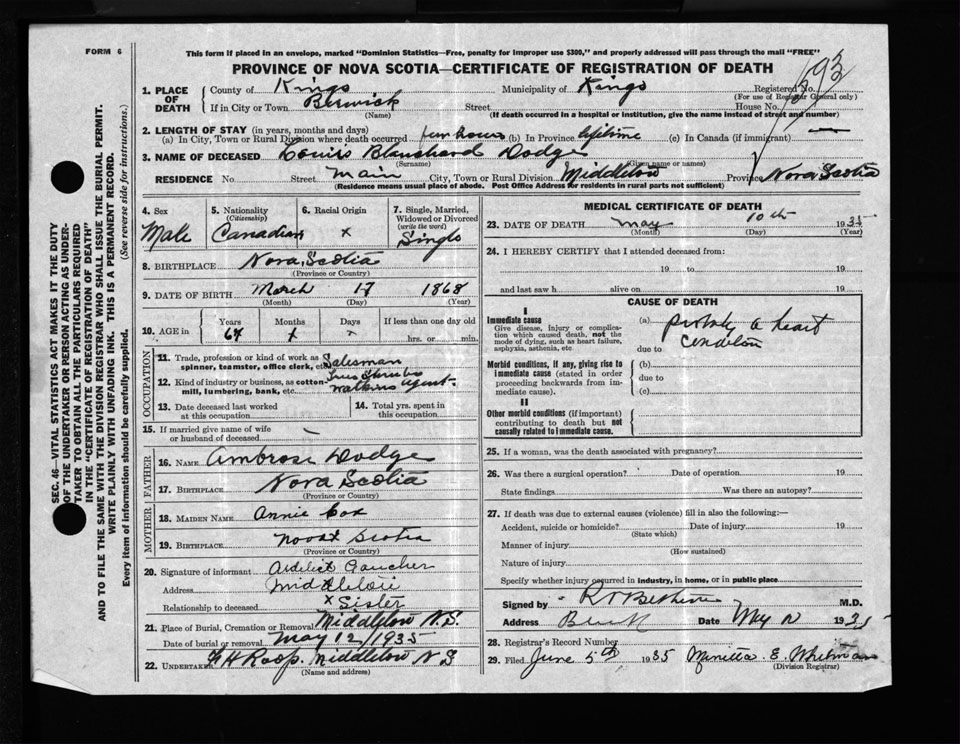 FORM 6
This form if placed in an envelope, marked "Dominion Statistics—Free, penalty for improper use $300," and properly addressed will pass through the mail "FREE"
PROVINCE OF NOVA SCOTIA—CERTIFICATE OF REGISTRATION OF DEATH
1. PLACE OF DEATH County of Kings Municipality of Kings Registered No.
(For use of Registrar General only)
If in City or Town Berwick Street House No.
(Name) (If death occurred in a hospital or institution, give the name instead of street and number)
2. LENGTH OF STAY (in years, months and days)
(a) In City, Town or Rural Division where death occurred few hours (b) In Province lifetime (c) In Canada (if immigrant) —
3. NAME OF DECEASED Blanchard Dodge
(Surname) (Given name or names)
RESIDENCE No. Street Main City, Town or Rural Division Middleton Province Nova Scotia
(Residence means usual place of abode. Post Office Address for residents in rural parts not sufficient)
4. Sex Male
5. Nationality (Citizenship) Canadian
6. Racial Origin x
7. Single, Married, Widowed or Divorced (write the word) Single
8. BIRTHPLACE Nova Scotia
(Province or Country)
9. DATE OF BIRTH March 17 1868
(Month) (Day) (Year)
10. AGE in Years 67 Months x Days x If less than one day old
hrs. or min.
OCCUPATION
11. Trade, profession or kind of work as spinner, teamster, office clerk, etc. Salesman
12. Kind of industry or business, as cotton-mill, lumbering, bank, etc. Watkins Agent
13. Date deceased last worked at this occupation
14. Total yrs. spent in this occupation
15. If married give name of wife or husband of deceased
FATHER
16. NAME Ambrose Dodge
17. BIRTHPLACE Nova Scotia
(Province or Country)
MOTHER
18. MAIDEN NAME Annie Cox
19. BIRTHPLACE Nova Scotia
(Province or Country)
20. Signature of informant
Address
Relationship to deceased x Sister
21. Place of Burial, Cremation or Removal Middleton N.S.
Date of burial or removal May 12/1935
22. UNDERTAKER Roop. Middleton N S
(Name and address)
MEDICAL CERTIFICATE OF DEATH
23. DATE OF DEATH May 10th 1935
(Month) (Day) (Year)
24. I HEREBY CERTIFY that I attended deceased from:
19 to 19
and last saw h alive on 19
CAUSE OF DEATH
I
Immediate cause (a) probably a heart
Give disease, injury or complication which caused death, not the mode of dying, such as heart failure, asphyxia, asthenia, etc
condition
due to
Morbid conditions, if any, giving rise to immediate cause (stated in order proceeding backwards from immediate cause).
(b)
due to
(c)
II
Other morbid conditions (if important) contributing to death but not causally related to immediate cause.
25. If a woman, was the death associated with pregnancy?
26. Was there a surgical operation? Date of operation 19
State findings Was there an autopsy?
27. If death was due to external causes (violence) fill in also the following:—
Accident, suicide or homicide? Date of injury 19
(State which)
Manner of injury
(How sustained)
Nature of injury
Specify whether injury occurred in industry, in home, or in public place
Signed by M.D.
Address Date May 1935
28. Registrar's Record Number
29. Filed June 5th 1935 Minetta E. Whitman
(Division Registrar)
SEC. 46—VITAL STATISTICS ACT MAKES IT THE DUTY
OF THE UNDERTAKER OR PERSON ACTING AS UNDER-
TAKER TO OBTAIN ALL THE PARTICULARS REQUIRED
IN THE "CERTIFICATE OF REGISTRATION OF DEATH"
AND TO FILE THE SAME WITH THE DIVISION REGISTRAR WHO SHALL ISSUE THE BURIAL PERMIT.
WRITE PLAINLY WITH UNFADING INK. THIS IS A PERMANENT RECORD.
Every item of information should be carefully supplied. (See reverse side for instructions.)